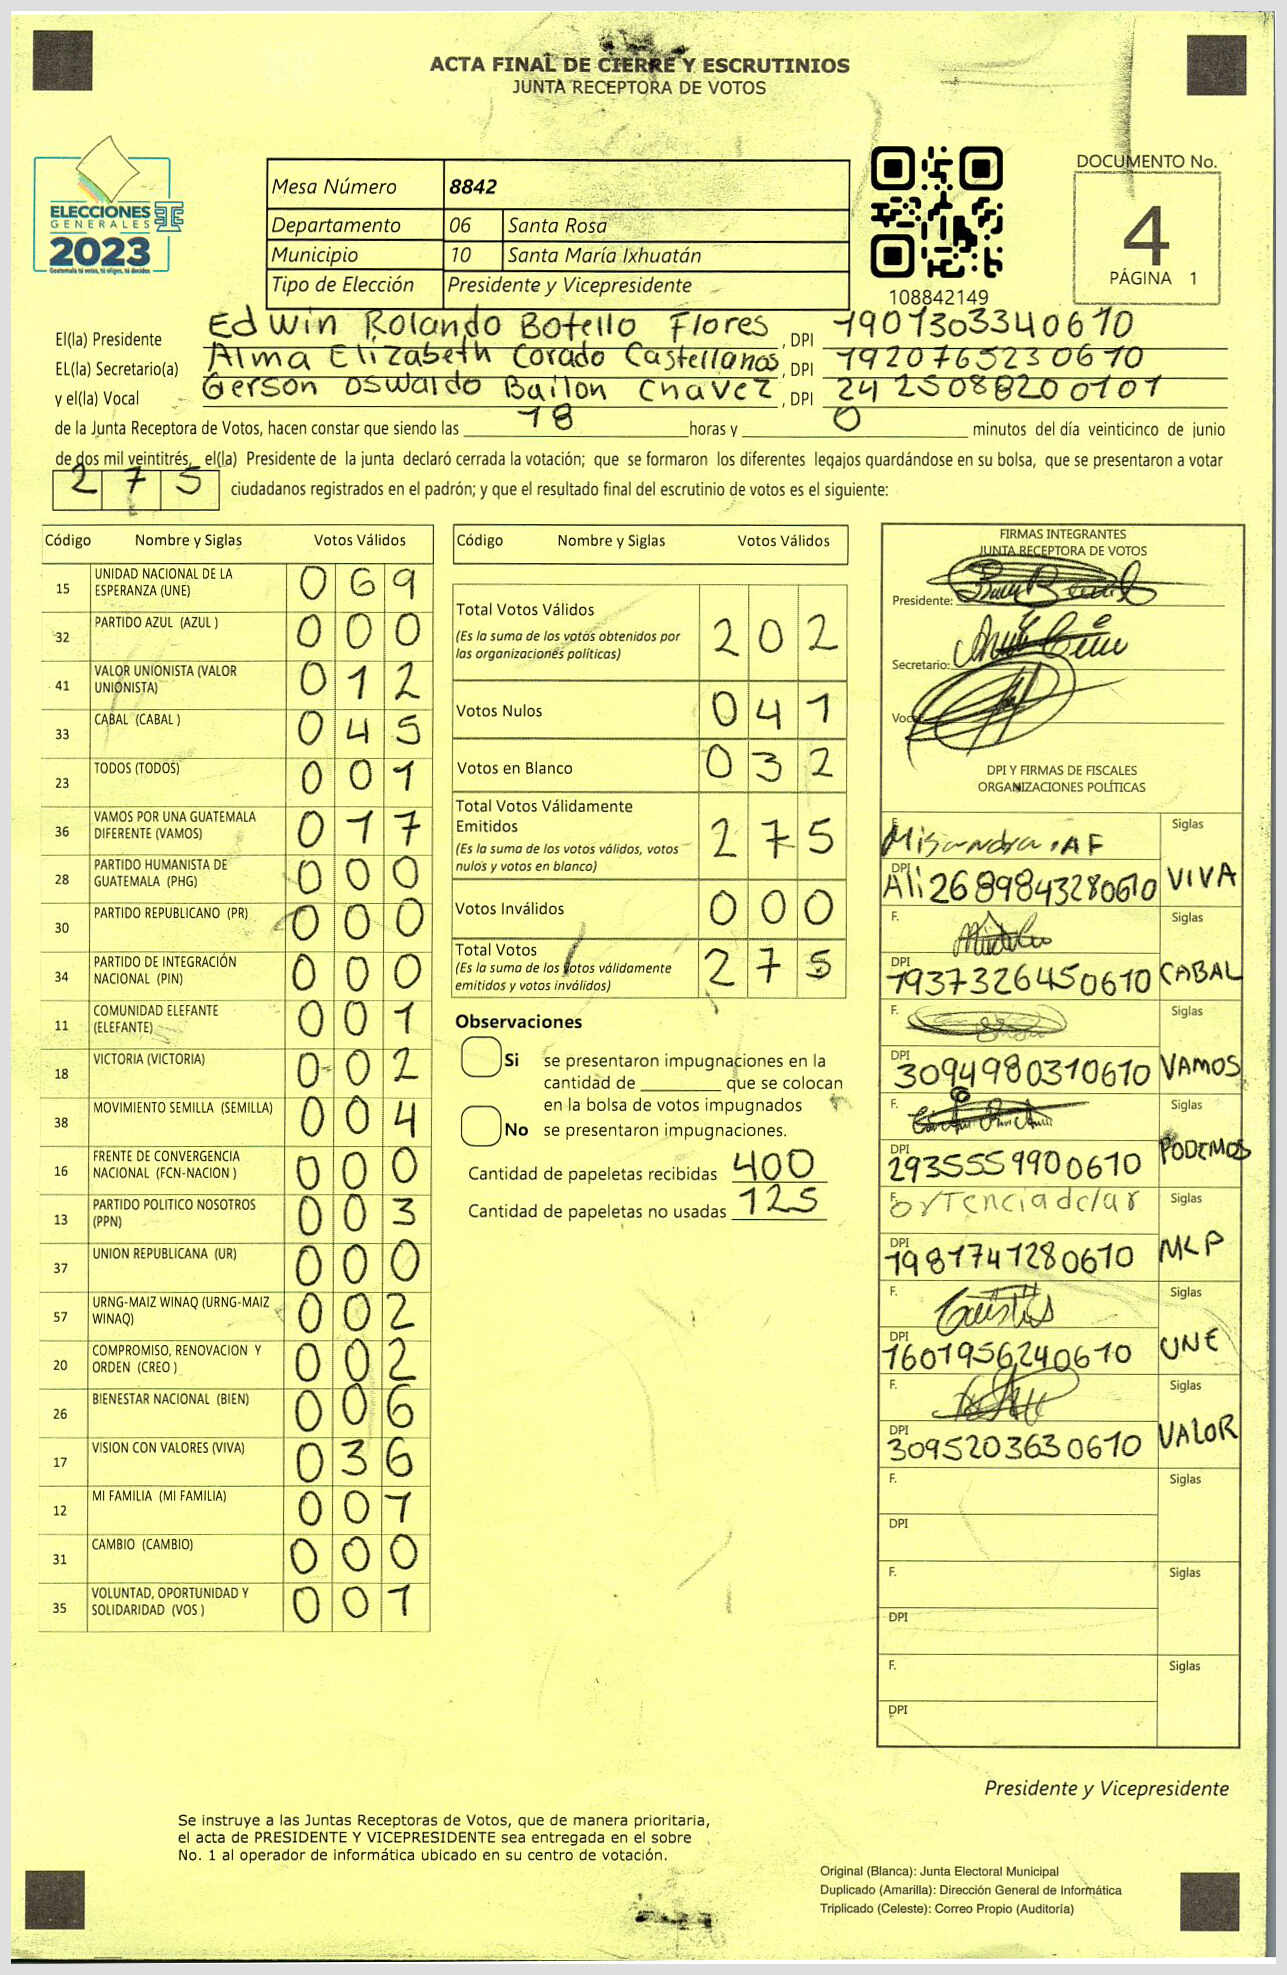 ACTA FINAL DE CIERRE Y ESCRUTINIOS
JUNTA RECEPTORA DE VOTOS
ELECCIONES
GENERALES
2023
Guatemala tú votas, tú eliges, tú decides
Mesa Número 8842
Departamento 06 Santa Rosa
Municipio 10 Santa María Ixhuatán
Tipo de Elección Presidente y Vicepresidente
108842149
DOCUMENTO No.
4
PÁGINA 1
El(la) Presidente Edwin Rolando Botello Flores, DPI 1901303340610
EL(la) Secretario(a) Alma Elizabeth Corado Castellanos, DPI 1920765230610
y el(la) Vocal Gerson Oswaldo Bailon Chavez, DPI 2425088200101
de la Junta Receptora de Votos, hacen constar que siendo las 18 horas y 0 minutos del día veinticinco de junio
de dos mil veintitrés, el(la) Presidente de la junta declaró cerrada la votación; que se formaron los diferentes legajos guardándose en su bolsa, que se presentaron a votar
275 ciudadanos registrados en el padrón; y que el resultado final del escrutinio de votos es el siguiente:
Código Nombre y Siglas Votos Válidos
15 UNIDAD NACIONAL DE LA ESPERANZA (UNE) 069
32 PARTIDO AZUL (AZUL ) 000
41 VALOR UNIONISTA (VALOR UNIONISTA) 012
33 CABAL (CABAL ) 045
23 TODOS (TODOS) 001
36 VAMOS POR UNA GUATEMALA DIFERENTE (VAMOS) 017
28 PARTIDO HUMANISTA DE GUATEMALA (PHG) 000
30 PARTIDO REPUBLICANO (PR) 000
34 PARTIDO DE INTEGRACIÓN NACIONAL (PIN) 000
11 COMUNIDAD ELEFANTE (ELEFANTE) 001
18 VICTORIA (VICTORIA) 002
38 MOVIMIENTO SEMILLA (SEMILLA) 004
16 FRENTE DE CONVERGENCIA NACIONAL (FCN-NACION ) 000
13 PARTIDO POLITICO NOSOTROS (PPN) 003
37 UNION REPUBLICANA (UR) 000
57 URNG-MAIZ WINAQ (URNG-MAIZ WINAQ) 002
20 COMPROMISO, RENOVACION Y ORDEN (CREO ) 002
26 BIENESTAR NACIONAL (BIEN) 006
17 VISION CON VALORES (VIVA) 036
12 MI FAMILIA (MI FAMILIA) 007
31 CAMBIO (CAMBIO) 000
35 VOLUNTAD, OPORTUNIDAD Y SOLIDARIDAD (VOS ) 001
Código Nombre y Siglas Votos Válidos
Total Votos Válidos 202
(Es la suma de los votos obtenidos por
las organizaciones políticas)
Votos Nulos 041
Votos en Blanco 032
Total Votos Válidamente
Emitidos 275
(Es la suma de los votos válidos, votos
nulos y votos en blanco)
Votos Inválidos 000
Total Votos 275
(Es la suma de los votos válidamente
emitidos y votos inválidos)
Observaciones
Si se presentaron impugnaciones en la
cantidad de ________ que se colocan
en la bolsa de votos impugnados
No se presentaron impugnaciones.
Cantidad de papeletas recibidas 400
Cantidad de papeletas no usadas 125
FIRMAS INTEGRANTES
JUNTA RECEPTORA DE VOTOS
Presidente:
Secretario:
Vocal
DPI Y FIRMAS DE FISCALES
ORGANIZACIONES POLÍTICAS
F. Siglas
DPI 2689843280610 VIVA
F. Siglas
DPI 1937326450610 CABAL
F. Siglas
DPI 3094980310610 VAMOS
F. Siglas
DPI 2935559900610 PODEMOS
F. Siglas
DPI 1981741280610 MLP
F. Siglas
DPI 1601956240610 UNE
F. Siglas
DPI 3095203630610 VALOR
F. Siglas
DPI
F. Siglas
DPI
F. Siglas
DPI
Presidente y Vicepresidente
Se instruye a las Juntas Receptoras de Votos, que de manera prioritaria,
el acta de PRESIDENTE Y VICEPRESIDENTE sea entregada en el sobre
No. 1 al operador de informática ubicado en su centro de votación.
Original (Blanca): Junta Electoral Municipal
Duplicado (Amarilla): Dirección General de Informática
Triplicado (Celeste): Correo Propio (Auditoría)